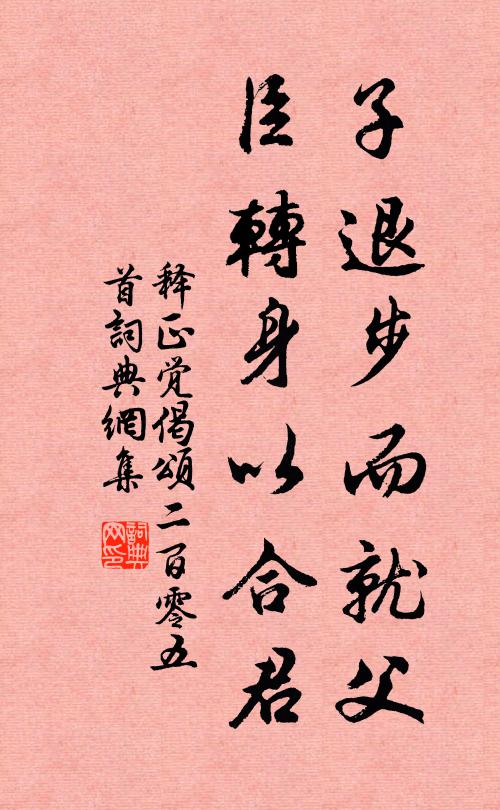 子退步而就父
臣轉身以合君
释正觉偈頌二百零五
首詞典網集
詞典
网印